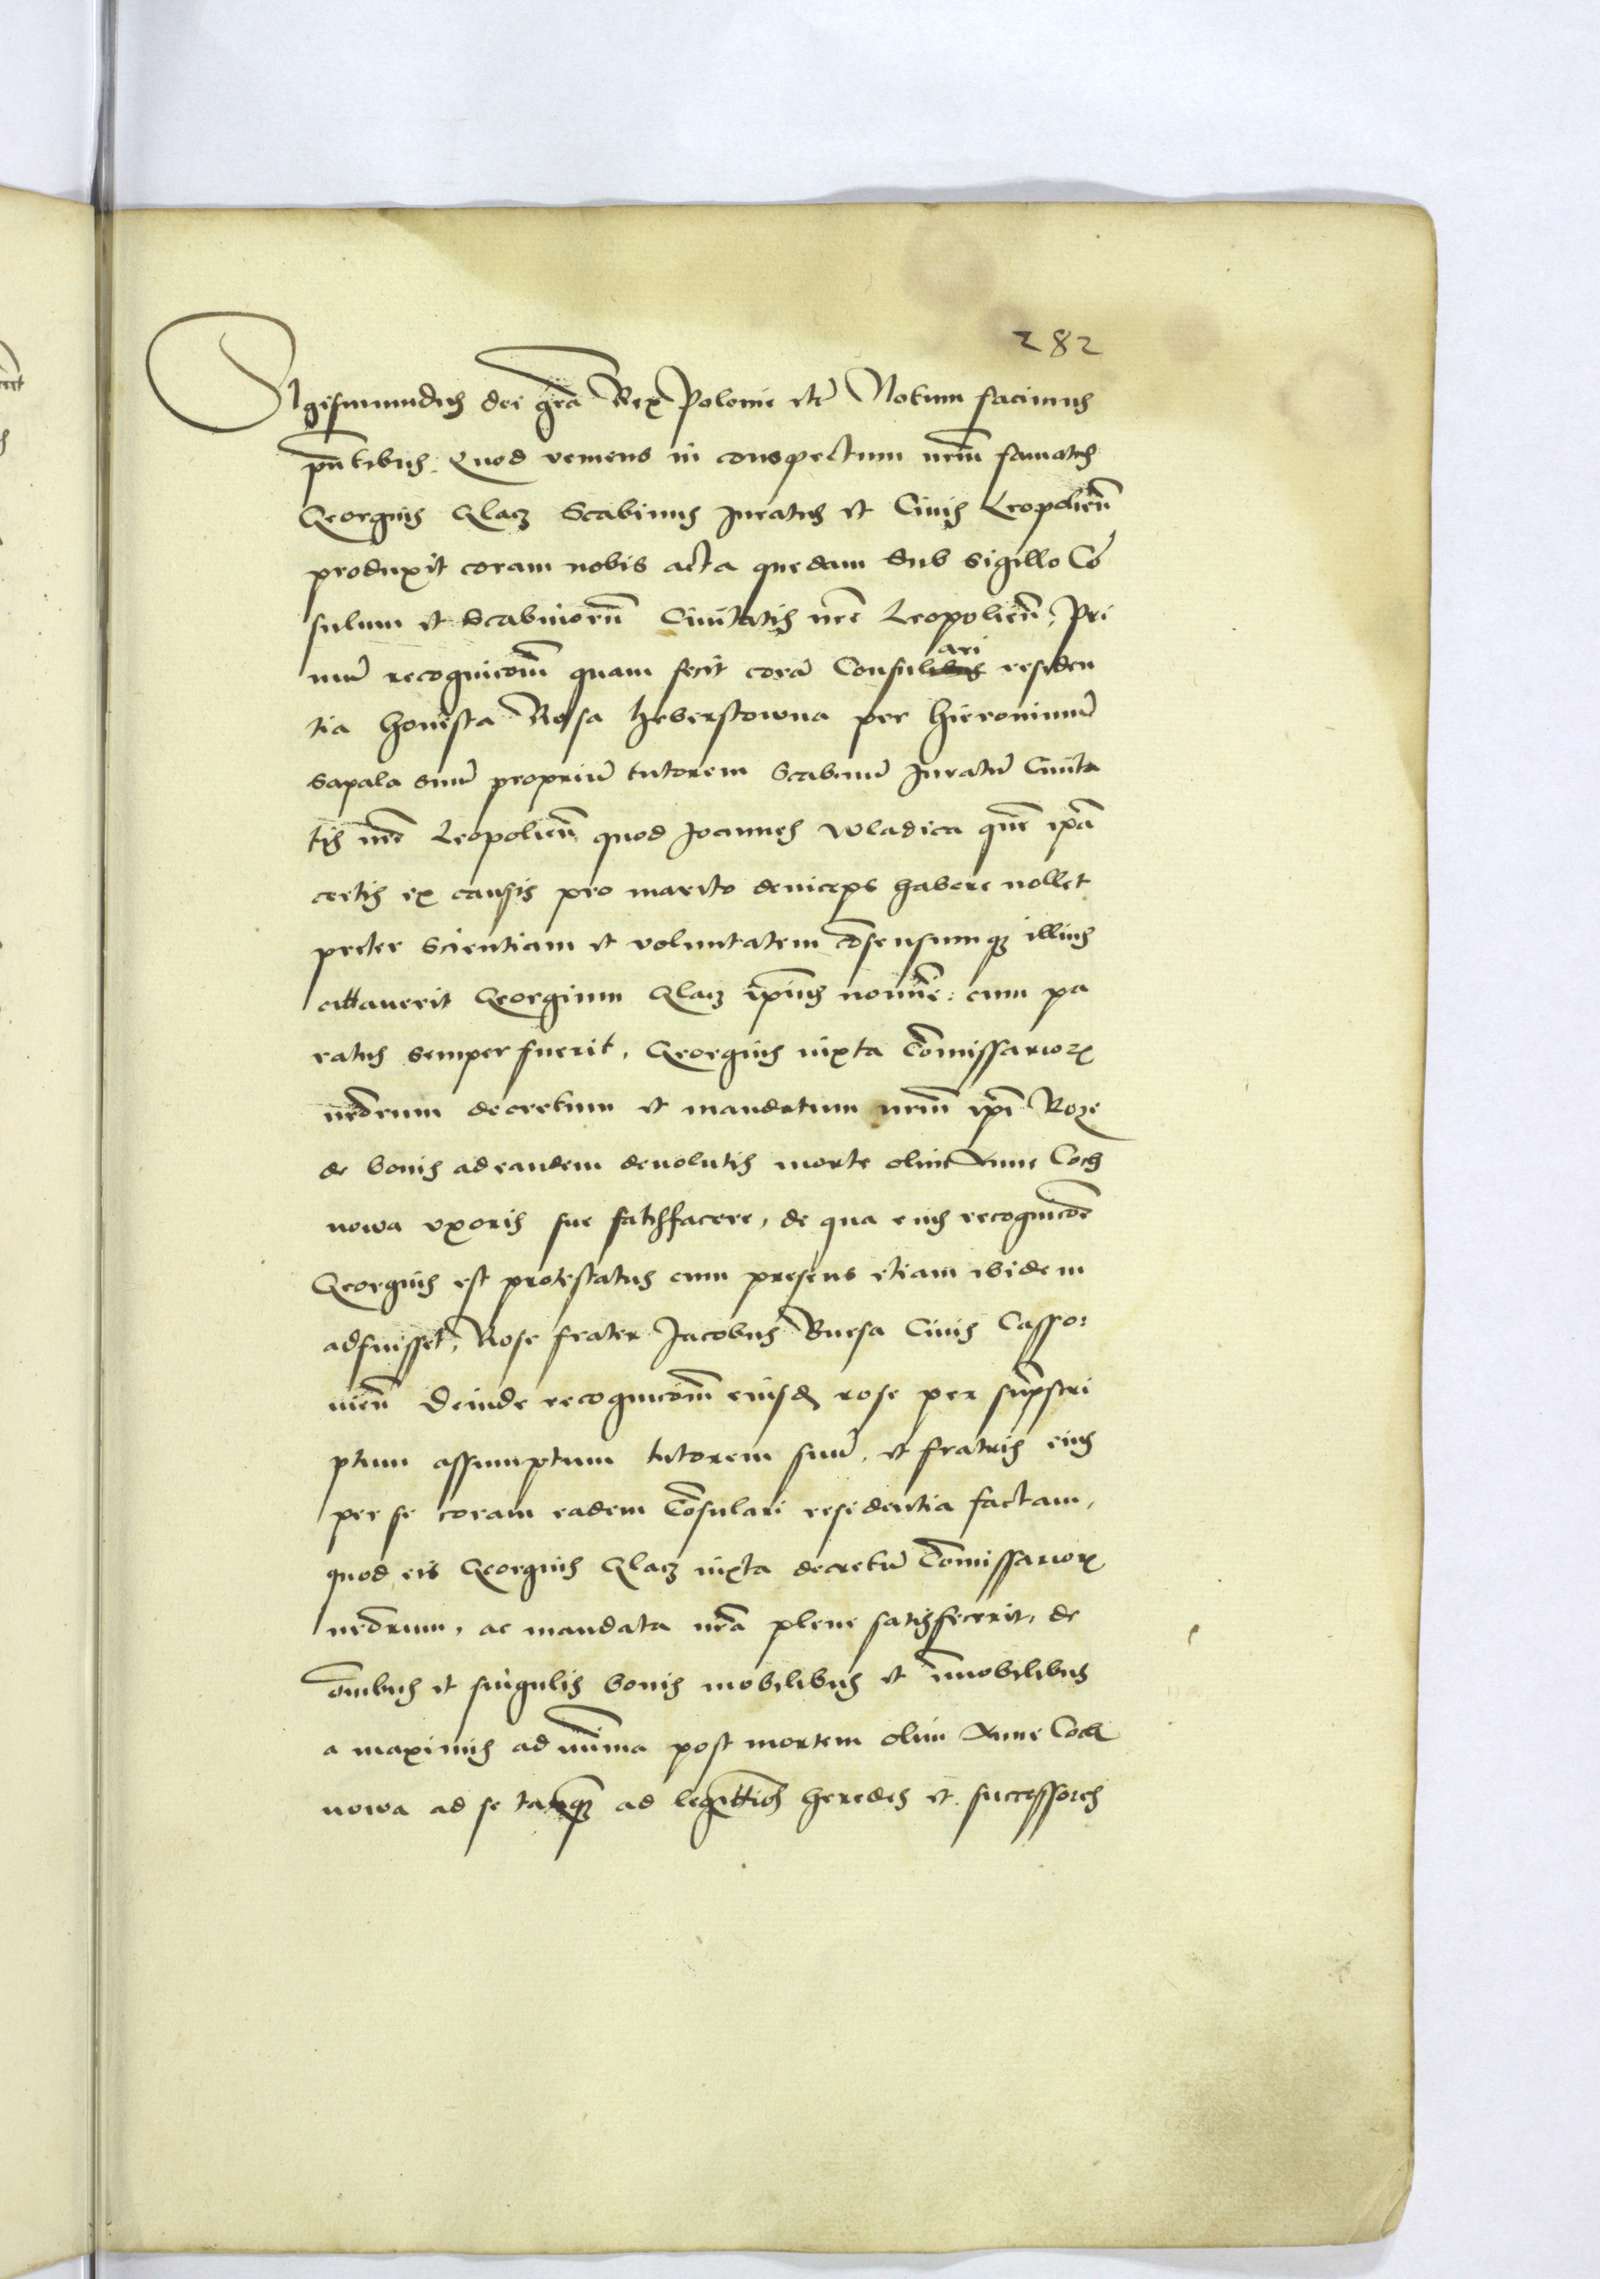 282
Sigismundus dei gra Rex Polonie etc Notum facimus
pntibus. Quod veniens in conspectum nrm famatus
Georgius Glacz Scabinus Iuratus et Civis Leopolien
produxit coram nobis acta quedam sub sigillo Co
sulum et Scabinorum Civitatis nre Leopolien, Pri
mu recognicom quam fecit cora Consulibus ari residen
tia honesta Rosa heberstowna per hieronimu
Sapala suu propriu tutorem Scabinu Iuratu Civita
tis nre Leopolien quod Joannes wladica que ipa
certis ex causis pro marito deinceps habere nollet
preter scientiam et voluntatem cosensumq illius
cittaverit Georgium Glacz ipius nomine: cum pa
ratus semper fuerit, Georgius iuxta Comissariorum
nrorum decretum et mandatum nrm ipi Roze
de bonis ad eandem devolutis morte olim Anne Coch
nowa uxoris sue satisfacere, de qua eius recognicoe
Georgius est protestatus cum presens etiam ibidem
adfuisset, Rose frater Jacobus Bursa Civis Casso:
vien Deinde recognicom eiusd rose per suprascri
ptum assumptum tutorem suu, et fratris eius
per se coram eadem Cosulari residentia factam,
quod eis Georgius Glacz iuxta decretu Comissariorum
nrorum, ac mandata nra plene satisfecerit, de
omibus et singulis bonis mobilibus et imobilibus
a maximis ad minima post mortem olim Anne Coch
nowa ad se tanq ad legittios heredes et successores